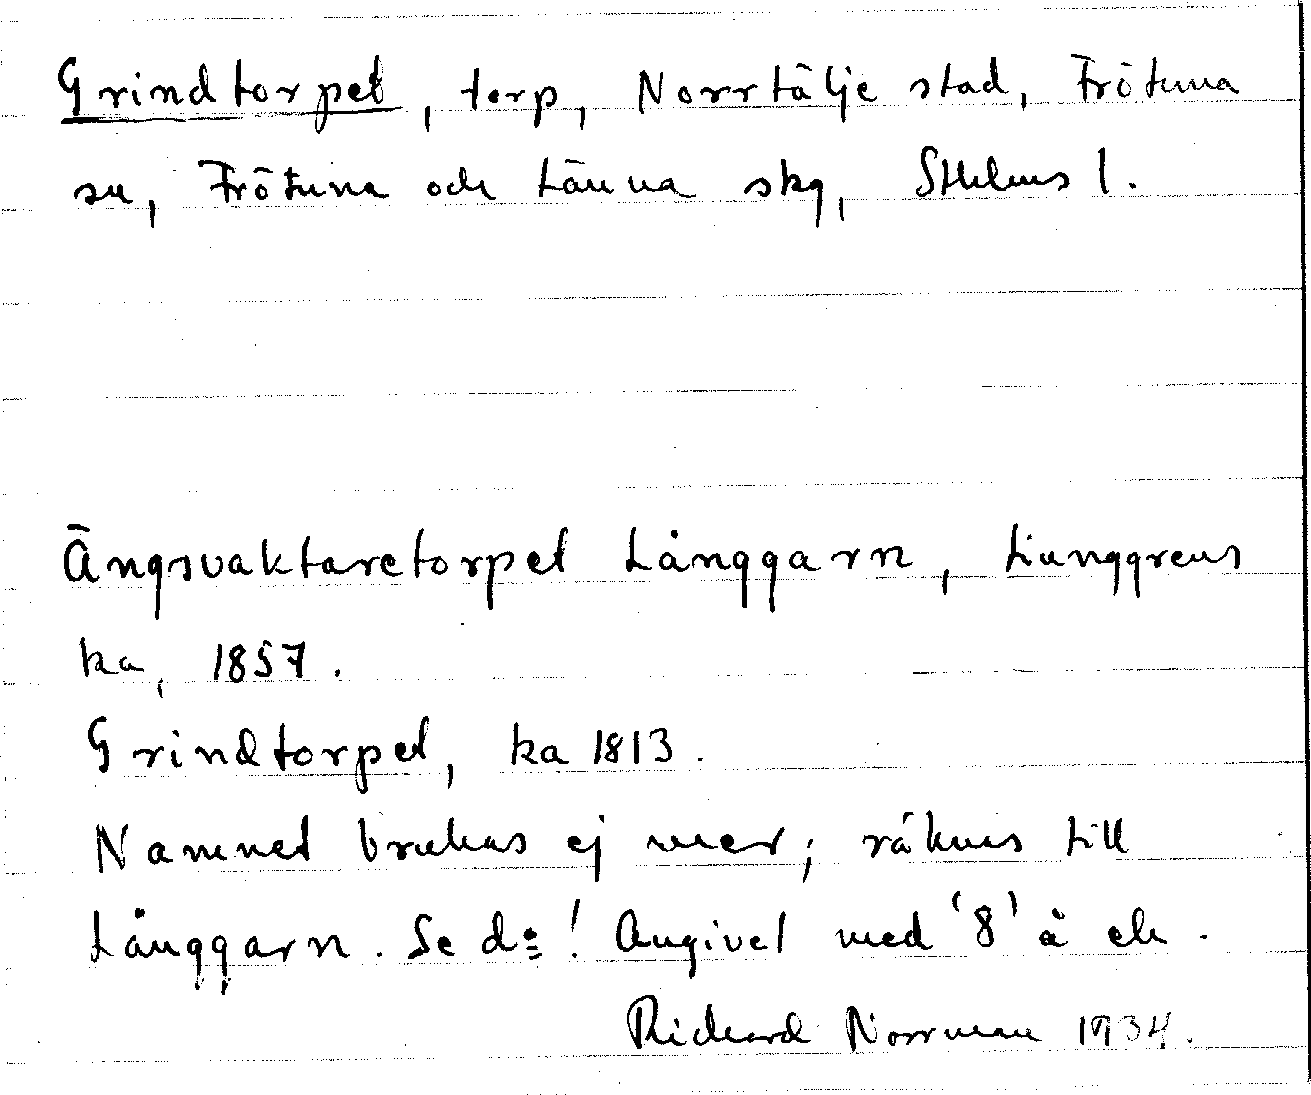 Grindtorpet, torp, Norrtälje stad, Frötuna
sn, Frötuna och Länna skg, Sthlms l.
Ängsvaktaretorpet Långgarn, Ljunggrens
ka, 1857.
Grindtorpet, ka 1813.
Namnet brukas ej mer; räknas till
Långgarn. Se do! Angivet med '8' å ek.
Richard Norrman 1934.